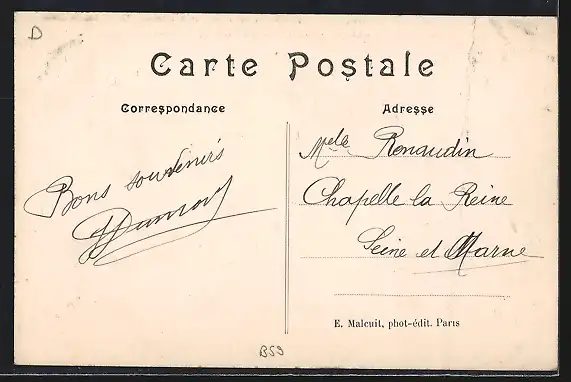 D
Carte Postale
Correspondance
Adresse
Bons souvenirs
Melle Renaudin
Chapelle la Reine
Seine et Marne
E. Malcuit, phot-édit. Paris
B59